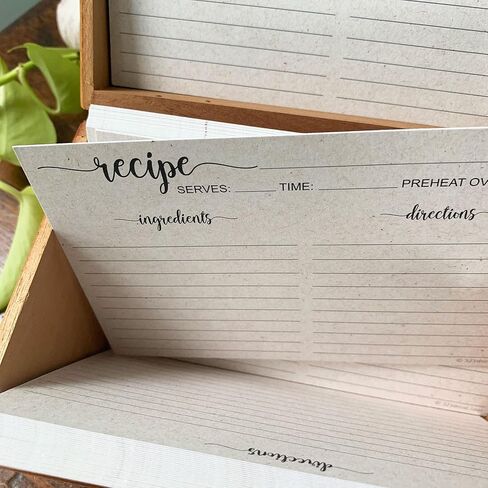 recipe
SERVES: TIME: PREHEAT OV
ingredients directions
directions